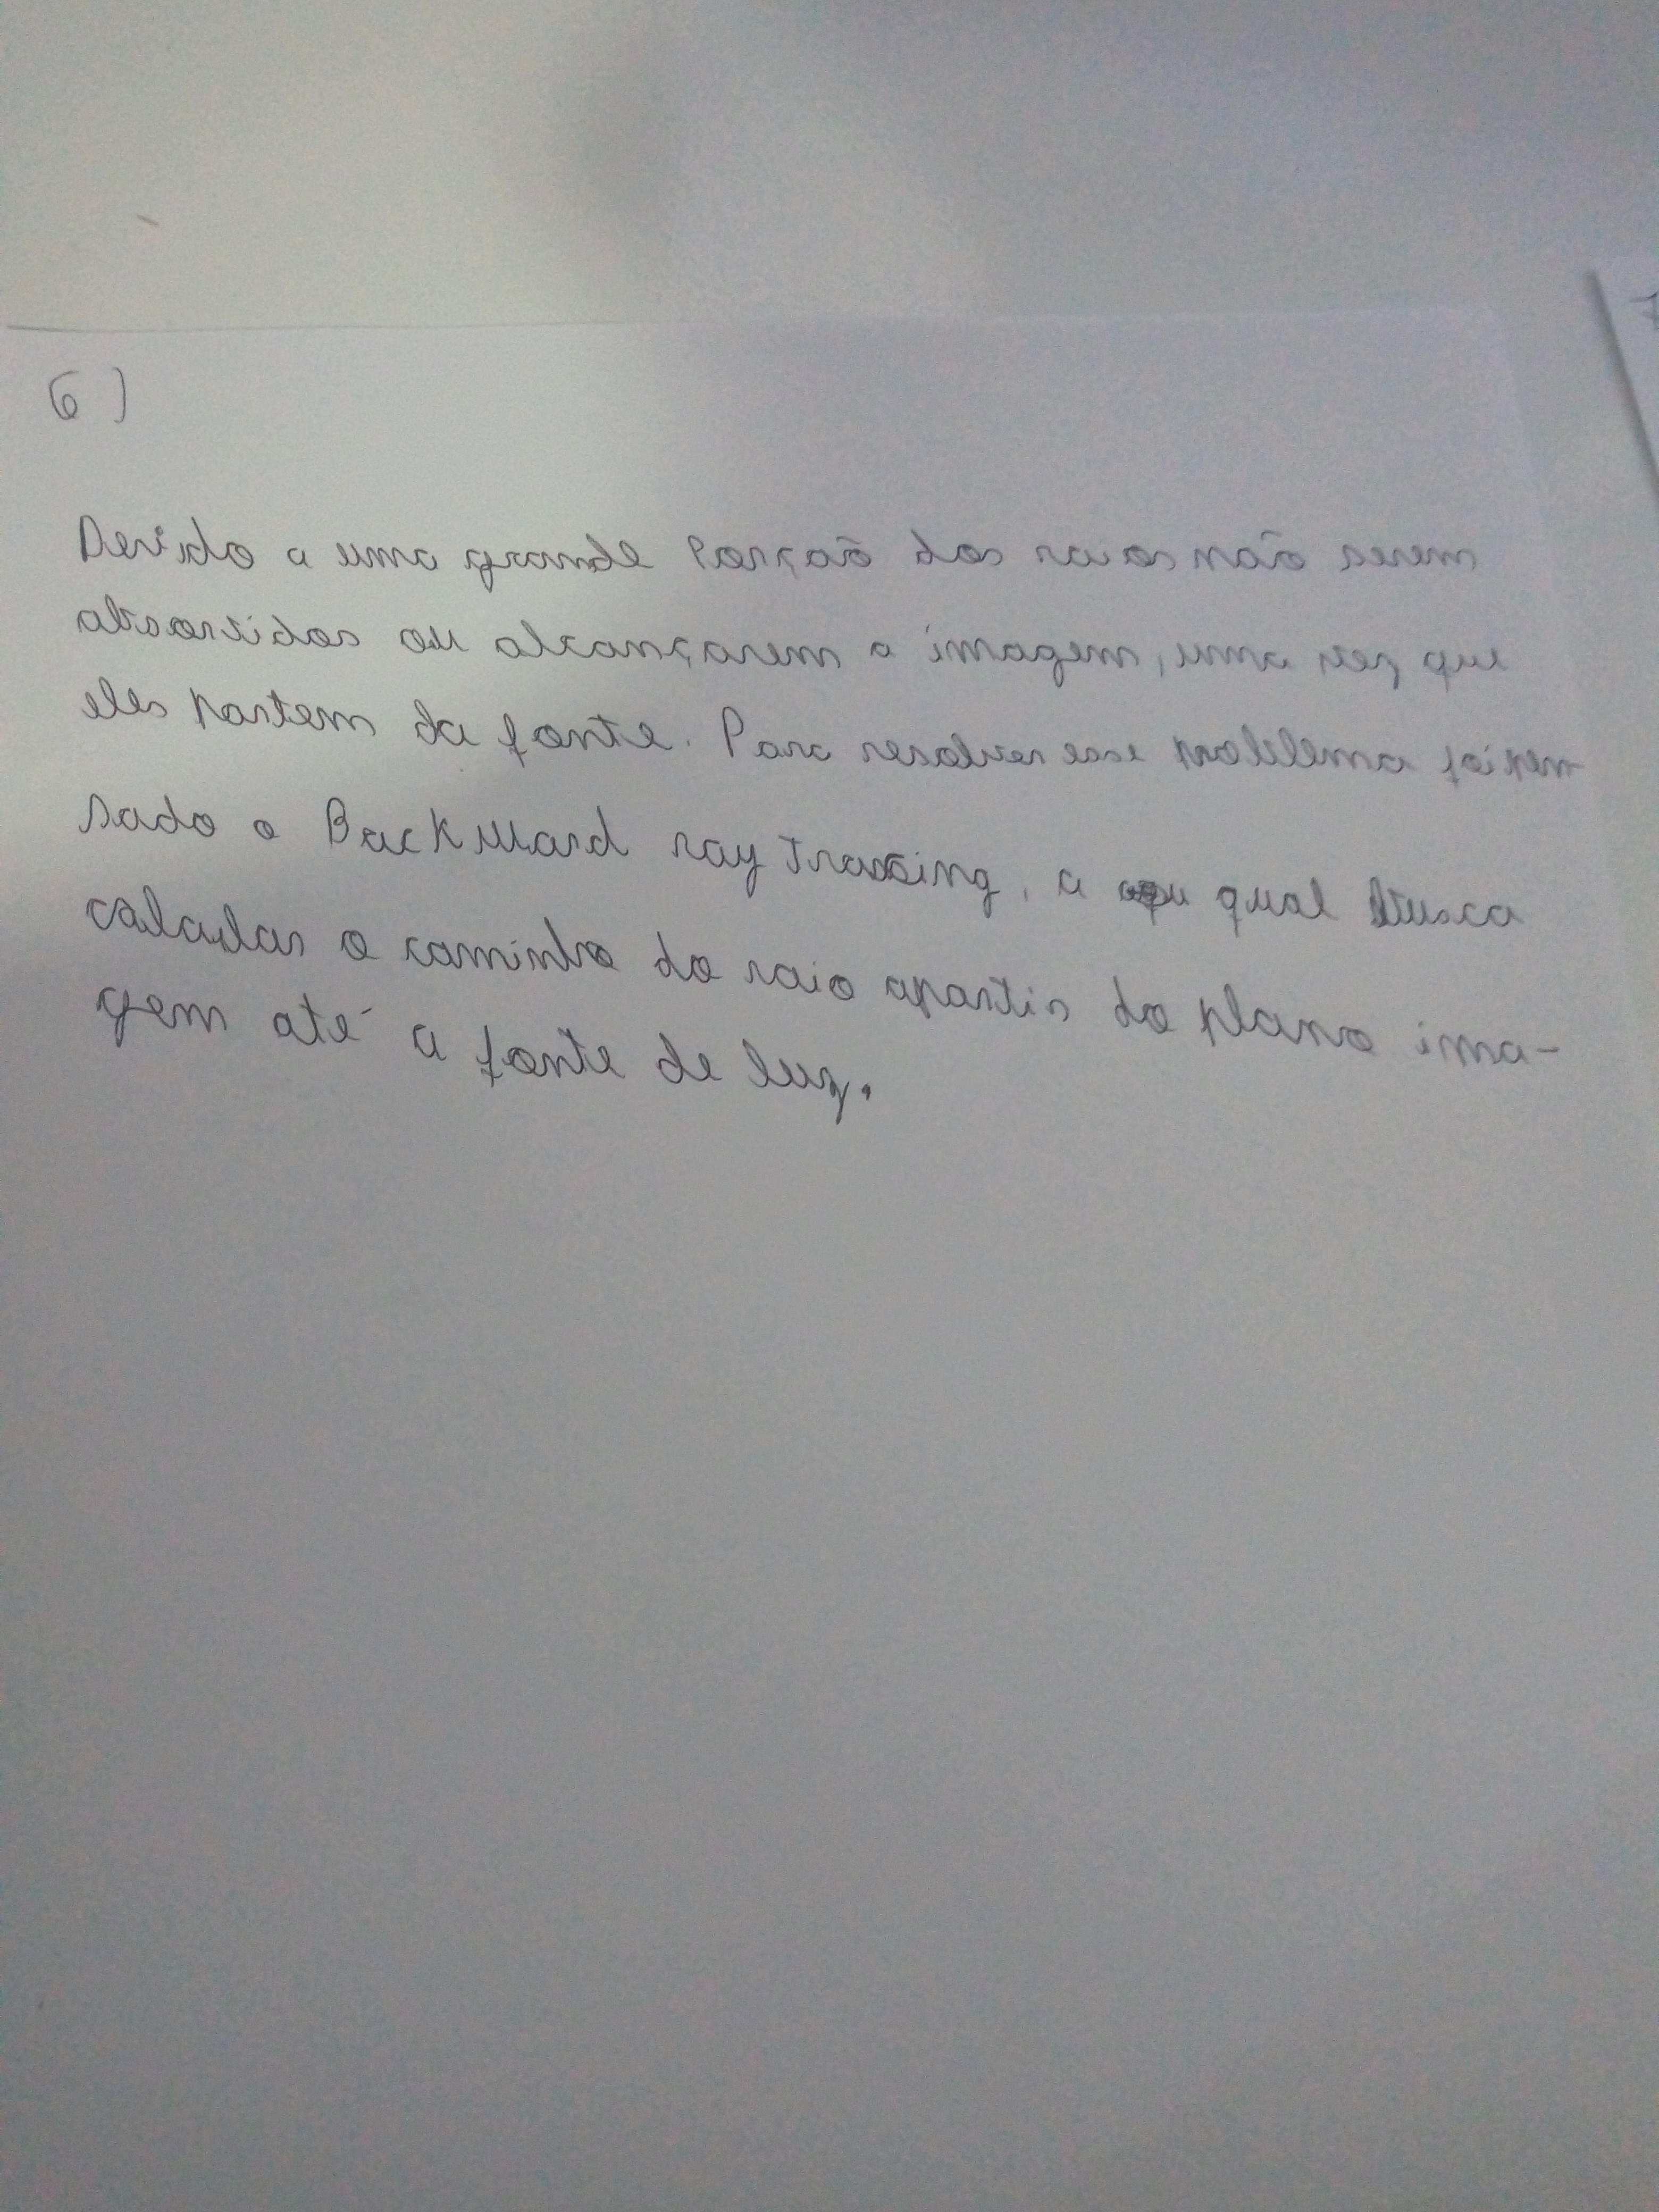 6)
Devido a uma grande Porção dos raios não serem
absorvidos ou alcançarem a imagem, uma vez que
eles partem da fonte. Para resolver esse problema foi pen-
sado o Backward ray tracing, a qual busca
calcular o caminho do raio apartir do plano ima-
gem até a fonte de luz.